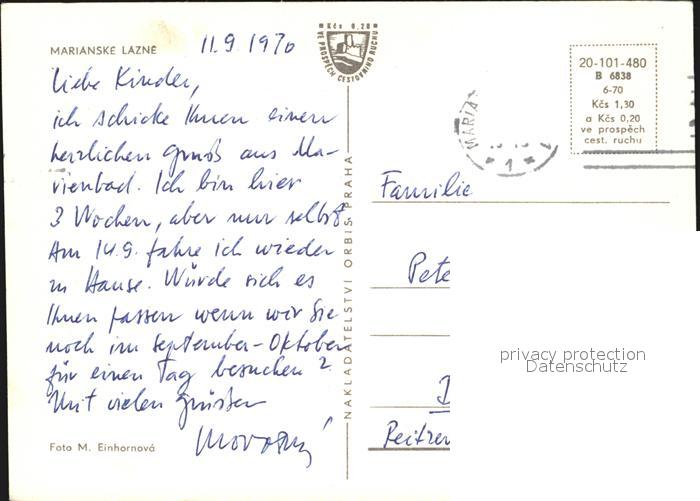 MARIANSKE LAZNE
11.9 1970
Liebe Kinder,
ich schicke Ihnen einen
herzlichen Gruß aus Ma-
rienbad. Ich bin hier
3 Wochen, aber nur selbst
Am 14.9. fahre ich wieder
zu Hause. Würde sich es
Ihnen passen wenn wir Sie
noch im September-Oktober
für einen Tag besuchen?
Mit vielen Grüßen
Novotný
Foto M. Einhornová
Kčs 0,20
VE PROSPĚCH CESTOVNÍHO RUCHU
NAKLADATELSTVÍ ORBIS PRAHA
MARIÁ
1
20-101-480
B 6838
6-70
Kčs 1,30
a Kčs 0,20
ve prospěch
cest. ruchu
Familie
Pete
privacy protection
Datenschutz